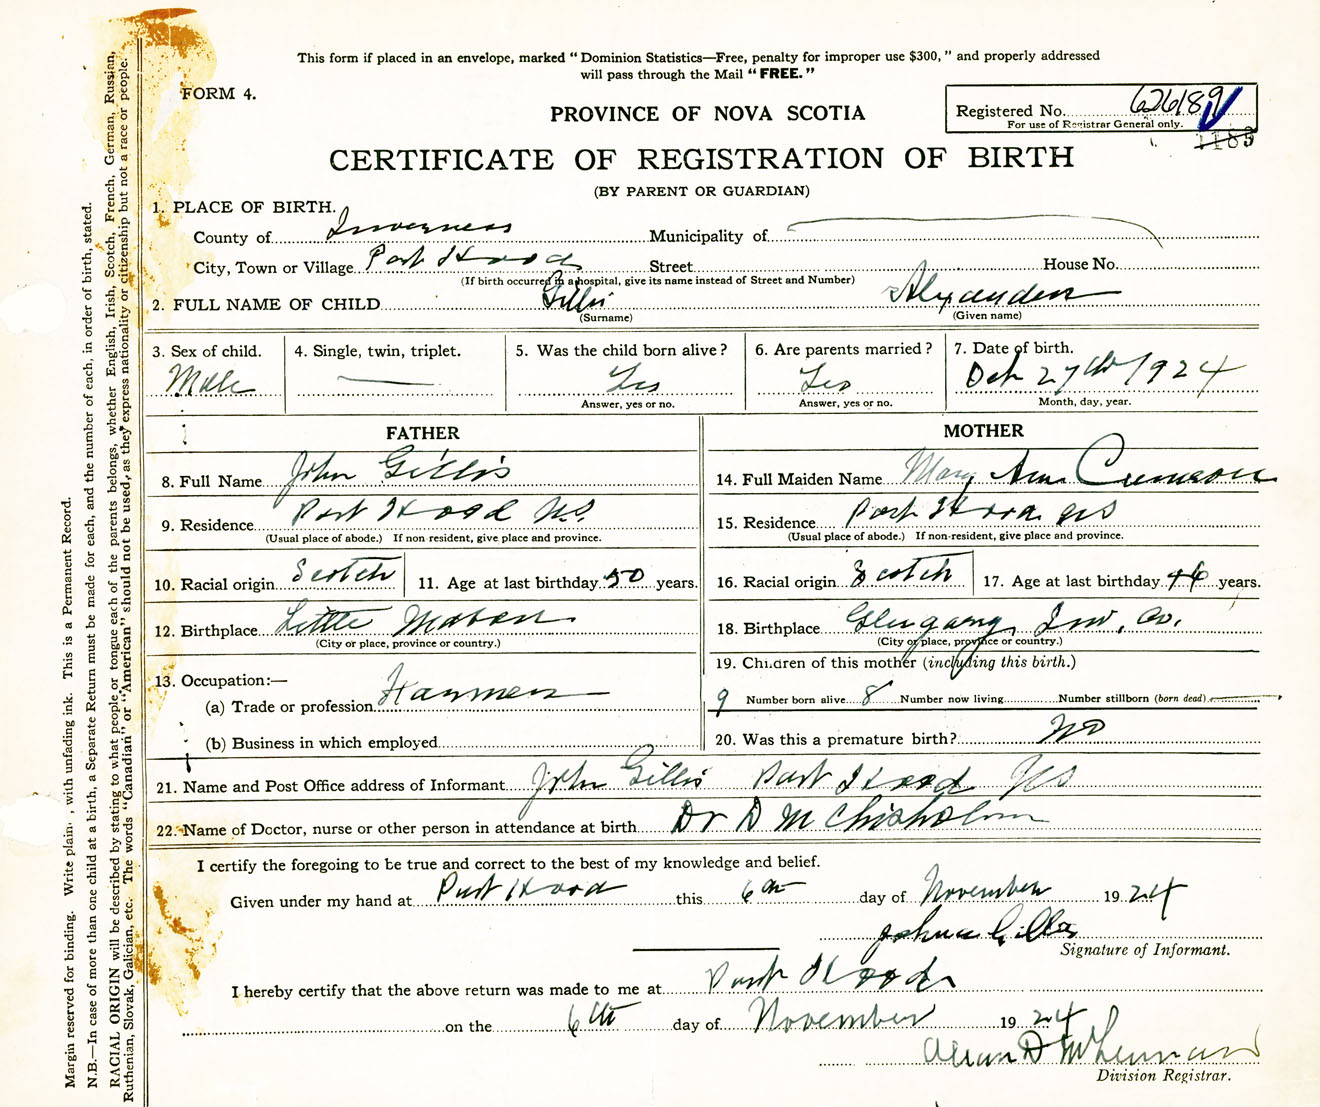 This form if placed in an envelope, marked "Dominion Statistics—Free, penalty for improper use $300," and properly addressed
will pass through the Mail "FREE."
FORM 4.
PROVINCE OF NOVA SCOTIA
Registered No. 626189
For use of Registrar General only.
1183
CERTIFICATE OF REGISTRATION OF BIRTH
(BY PARENT OR GUARDIAN)
1. PLACE OF BIRTH.
County of Inverness Municipality of
City, Town or Village Port Hood Street House No.
(If birth occurred in a hospital, give its name instead of Street and Number)
2. FULL NAME OF CHILD Gillis Alexander
(Surname) (Given name)
3. Sex of child. 4. Single, twin, triplet. 5. Was the child born alive? 6. Are parents married? 7. Date of birth.
Male — Yes Yes Oct 27th 1924
Answer, yes or no. Answer, yes or no. Month, day, year.
FATHER MOTHER
8. Full Name John Gillis 14. Full Maiden Name Mary Ann Cameron
9. Residence Port Hood N.S. 15. Residence Port Hood NS
(Usual place of abode.) If non-resident, give place and province. (Usual place of abode.) If non-resident, give place and province.
10. Racial origin Scotch 11. Age at last birthday 50 years. 16. Racial origin Scotch 17. Age at last birthday 46 years.
12. Birthplace Little Mabou 18. Birthplace Glengarry, Inv. Co.
(City or place, province or country.) (City or place, province or country.)
13. Occupation:— 19. Children of this mother (including this birth.)
(a) Trade or profession Farmer 9 Number born alive 8 Number now living Number stillborn (born dead)
(b) Business in which employed 20. Was this a premature birth? No
21. Name and Post Office address of Informant John Gillis Port Hood NS
22. Name of Doctor, nurse or other person in attendance at birth Dr D M Chisholm
I certify the foregoing to be true and correct to the best of my knowledge and belief.
Given under my hand at Port Hood this 6th day of November 1924
John Gillis
Signature of Informant.
I hereby certify that the above return was made to me at Port Hood
on the 6th day of November 1924
D
Division Registrar.
Margin reserved for binding. Write plain, with unfading ink. This is a Permanent Record.
N.B.—In case of more than one child at a birth, a Separate Return must be made for each, and the number of each, in order of birth, stated.
RACIAL ORIGIN will be described by stating to what people or tongue each of the parents belongs, whether English, Irish, Scotch, French, German, Russian,
Ruthenian, Slovak, Galician, etc. The words "Canadian" or "American" should not be used, as they express nationality or citizenship but not a race or people.